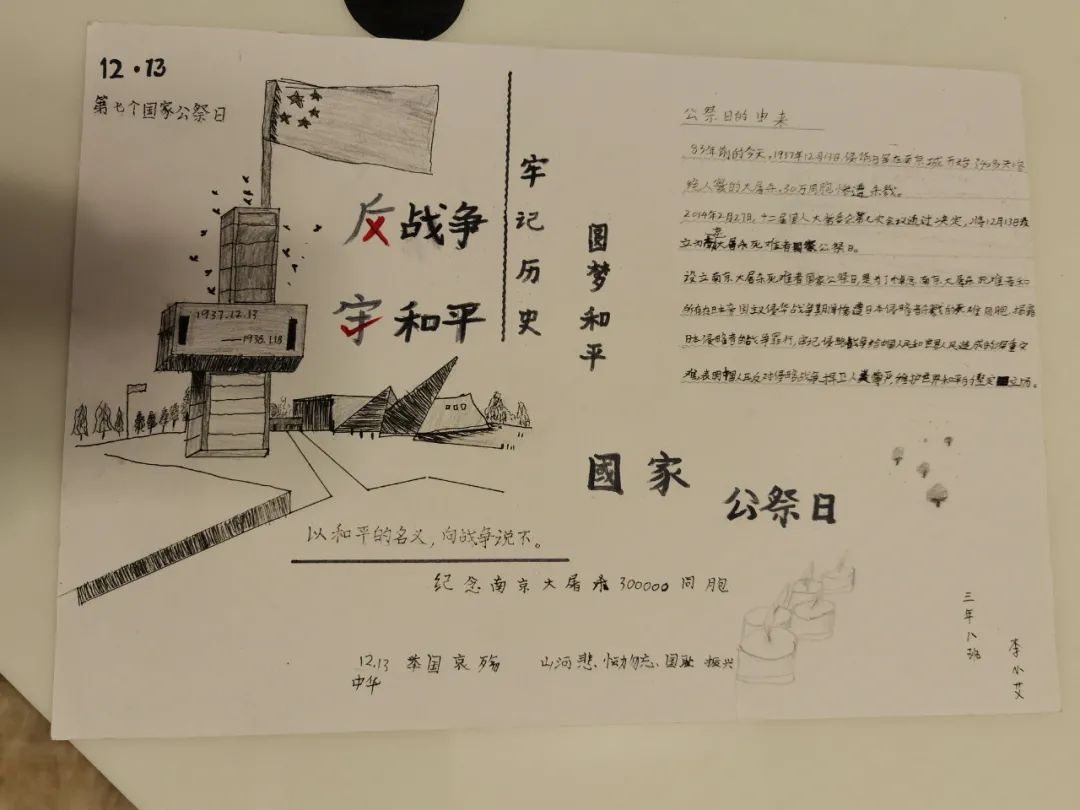 12·13
第七个国家公祭日
反战争
守和平
1937.12.13
—1938.1.13
牢记历史
圆梦和平
公祭日的由来
83年前的今天,1937年12月13日,侵华日军在南京城开始
绝人寰的大屠杀,30万同胞惨遭杀戮。
2014年2月27日,十二届全国人大常委会第七次会议通过决定,将12月13日设
立为南京大屠杀死难者国家公祭日。
设立南京大屠杀死难者国家公祭日是为了悼念南京大屠杀死难者和
所有在日本帝国主义侵华战争期间惨遭日本侵略者杀戮的死难同胞,揭露
日本侵略者的战争罪行,牢记侵略战争给中国人民和世界人民造成的深重灾
难,表明中国人民反对侵略战争、捍卫人类尊严、维护世界和平的坚定立场。
國家
公祭日
以和平的名义,向战争说不。
纪念南京大屠杀300000同胞
12.13 举国哀殇 山河悲、恸勿忘、国耻 振兴
中华
三年八班
李小艾